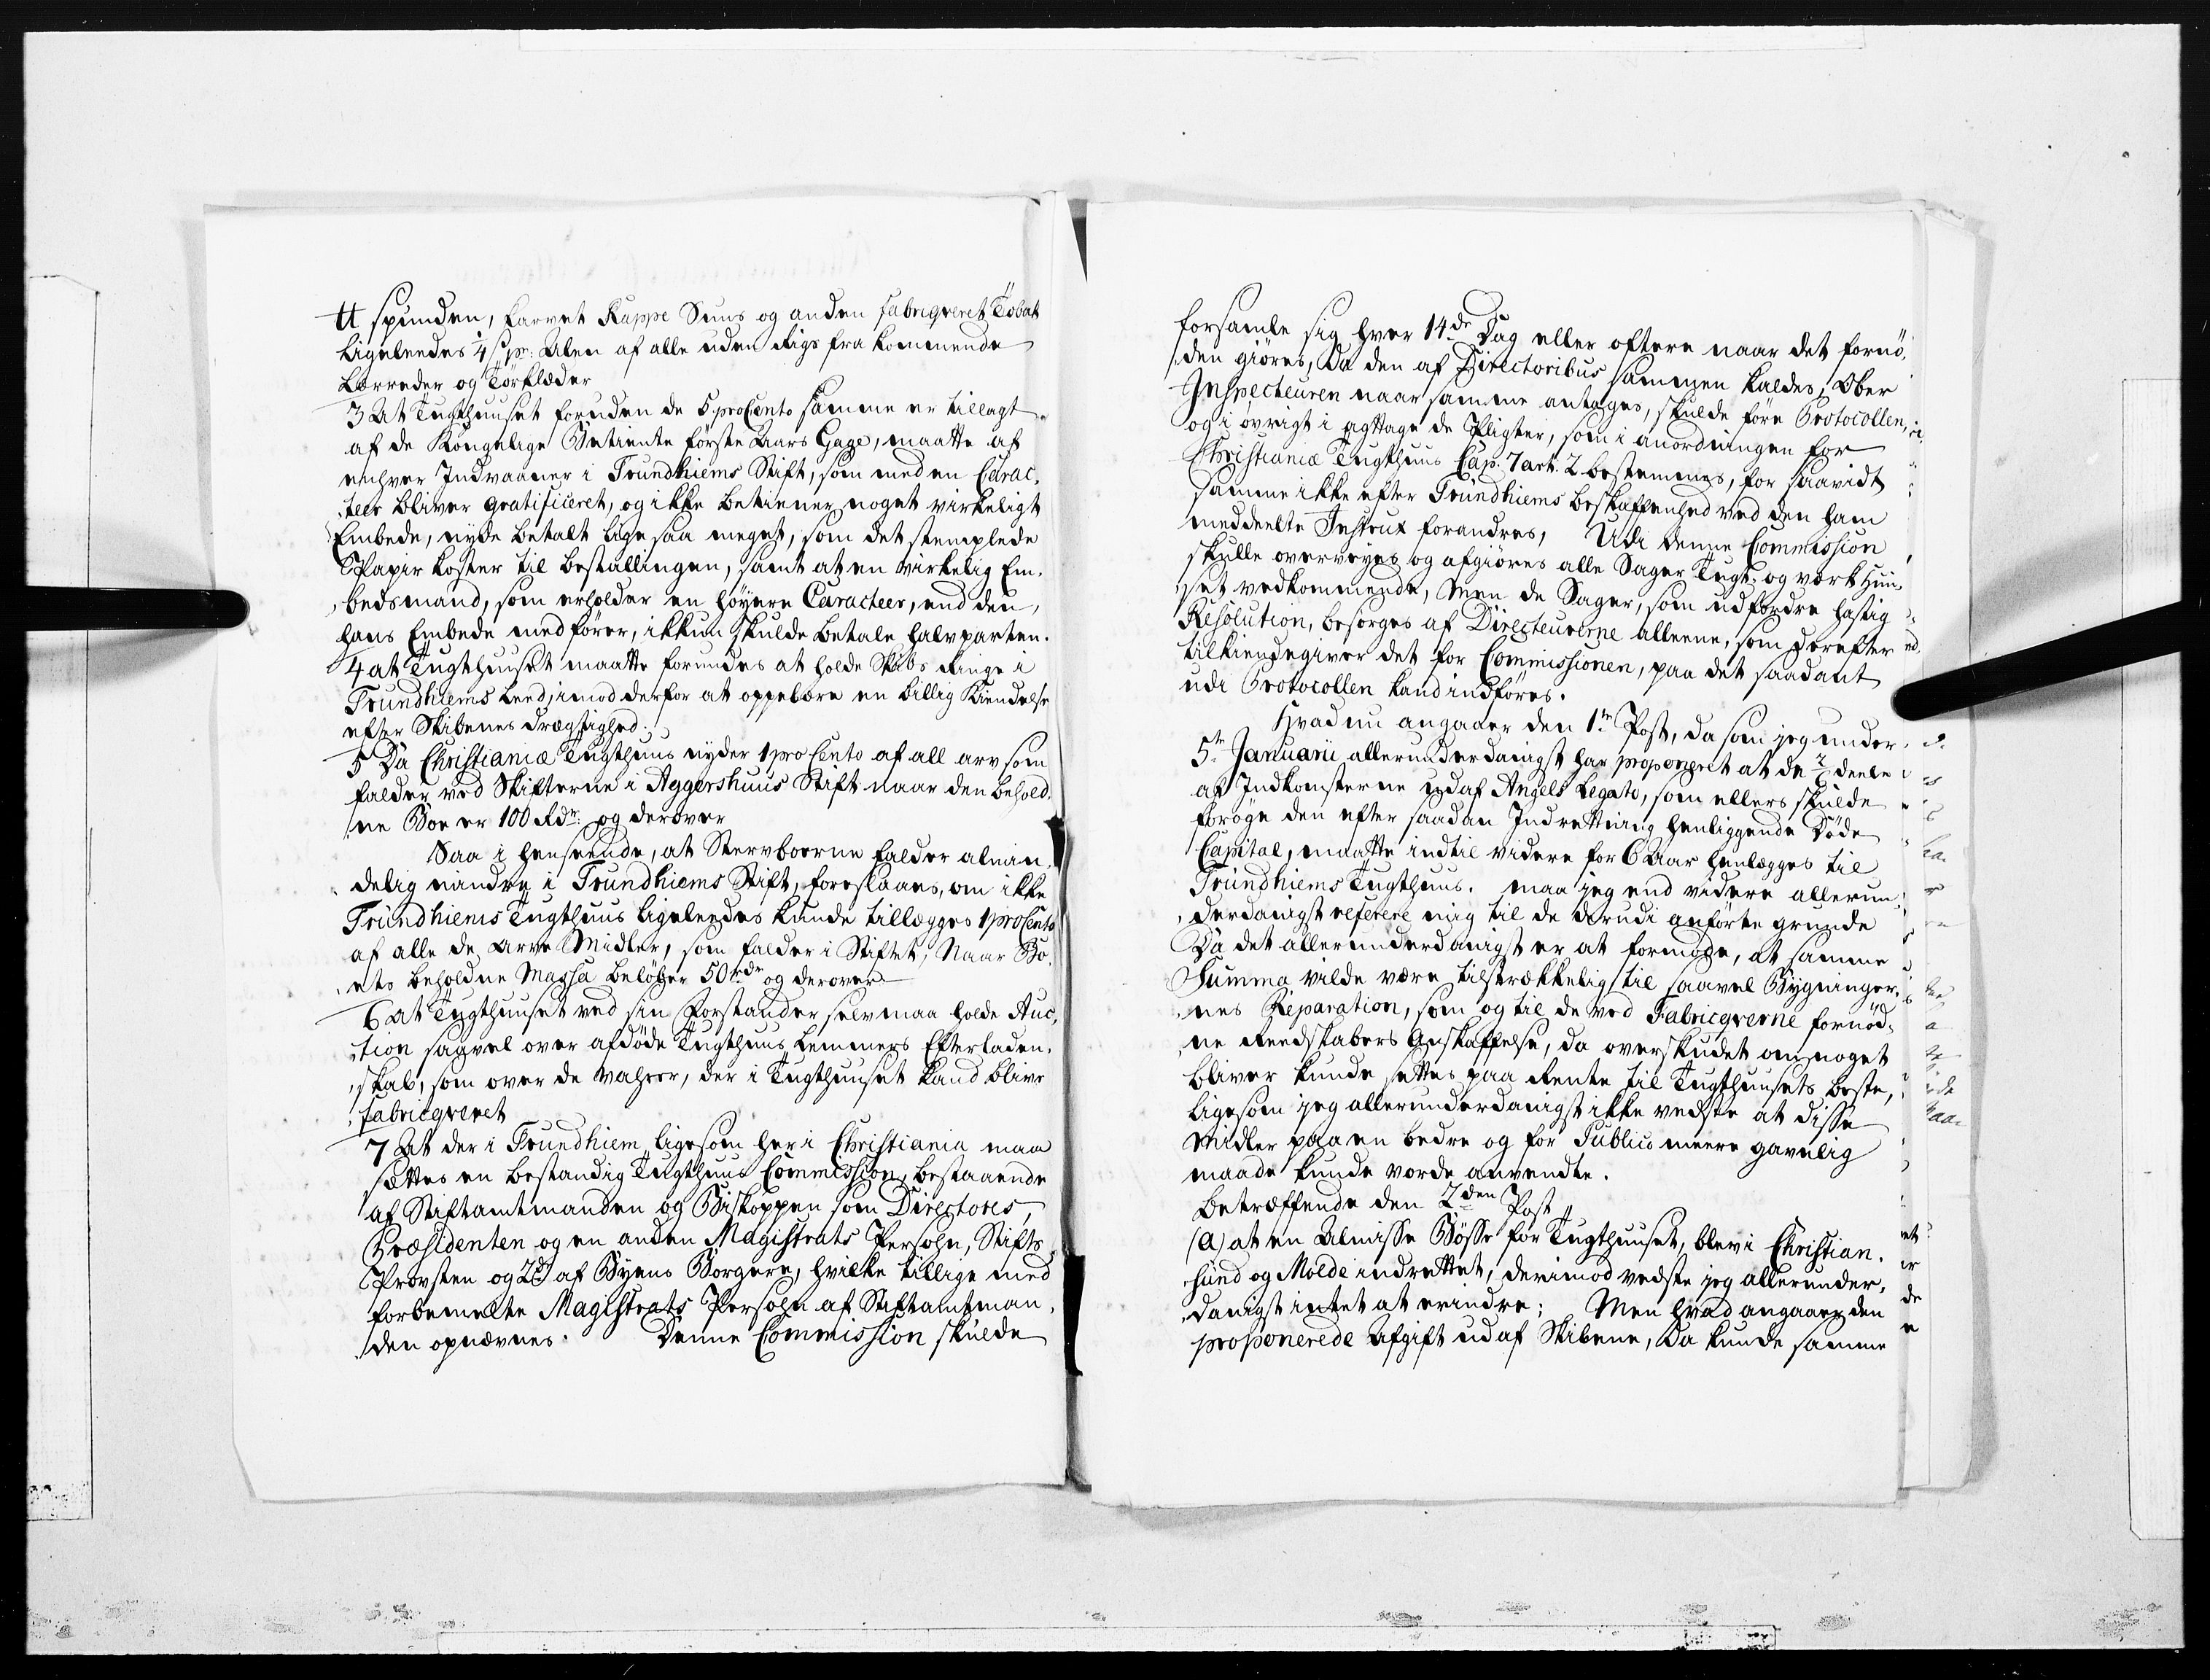 tt spunden, karvet Kappe Suus og anden fabriqveret Tobak
Ligeleedes 4 s pr: Alen af alle uden Rigs fra kommende
Lærreder og Tørklæder
3 At Tugthuuset foruden de 5 proCento samme er tillagt
af de Kongelige Betiente første Aars Gage, maatte af
enhver Indvaaner i Trundhiems Stift, som med en Carac,
teer bliver gratificeret, og ikke betiener noget virkeligt
Embede, nyde betalt lige saa meget, som det stemplede
Papir koster til bestallingen, samt at en virkelig Em,
bedsmand, som erholder en høyere Caracteer, end den,
hans Embede medfører, ikkun skulde betale halvparten.
4 at Tugthuuset maatte forundes at holde Skibs Ringe i
Trundhiems Leed, imod derfor at oppebære en billig Kiendelse
efter Skibenes drægtighed.
5 Da Christianiæ Tugthuus nyder 1 pro Cento af all arv som
falder ved Skifterne i Aggershuus Stift naar den behold,
ne Boe er 100 Rdr: og derover
Saa i henseende, at Stervboerne falder almin,
delig mindre i Trundhiems Stift, foreslaaes, om ikke
Trundhiems Tugthuus ligeleedes kunde tillægges 1 proCento
af alle de arve Midler, som falder i Stiftet, Naar Bo,
ets beholdne Massa beløber 50 rdr og derover
6 At Tugthuuset ved sin Forstander selv maa holde Auc,
tion saavel over afdøde Tugthuus Lemmers Efterladen,
skab, som over de vahrer, der i Tugthuuset kand blive
fabricqveret
7 At der i Trundhiem ligesom her i Christiania maa
sættes en bestandig Tugthuus Commission, bestaaende
af Stiftamtmanden og Biskoppen som Directores,
Præsidenten og en anden Magistrats Persohn, Stifts
Provsten og 2de af Byens Borgere, hvilke tillige med
forbemelte Magistrats Persohn af Stiftamtman,
den opnævnes. Denne Commission skulde
forsamle sig hver 14de Dag eller oftere naar det fornø,
den giøres, da den af Directoribus sammen kaldes, Ober
Inspecteuren naar samme antages, skulde føre Protocollen,
og i øvrigt i agttage de Pligter, som i anordningen for
Christianiæ Tugthuus Cap. 7 art. 2 bestemmes, for saavidt
samme ikke efter Trundhiems beskaffenhed ved den ham
meddeelte Instrux forandres, Udi denne Commission
skulle overveyes og afgiøres alle Sager Tugt, og værk Huu,
set vedkommende, Men de Sager, som udfordre hastig
Resolution, besørges af Directeurerne alleene, som derefter
tilkiendegiver det for Commissionen, paa det saadant
udi Protocollen kand indføres.
Hvad nu angaaer den 1te Post, da som jeg under
5te Januarii allerunderdanigst har proponeret at de deele
af Indkomsterne udaf Angels Legato, som ellers skulde
forøge den efter saadan Indrettning henliggende Døde
Capital, maatte indtil videre for 6 Aar henlægges til
Trundhiems Tugthuus. maa jeg end videre allerun,
derdanigst referere mig til de derudi anførte grunde
Da det allerunderdanigst er at formode, at samme
Summa vilde være tilstrækkelig til saavel Bygninger,
nes Reparation, som og til de ved Fabricqverne fornød,
ne Reedskabers Anskaffelse, da overskudet om noget
bliver kunde settes paa Rente til Tugthuusets beste,
ligesom jeg allerunderdanigst ikke vedste at disse
Midler paa en bedre og for Publico meere gavnlig
maade kunde vorde anvendte.
Betræffende den 2den Post
(a) at en Almisse Bøsse for Tugthuuset, blev i Christian,
sund og Molde indrettet, derimod vedste jeg allerunder,
danigst intet at erindre; Men hvad angaaer den
proponerede Afgift udaf Skibene, da kunde samme